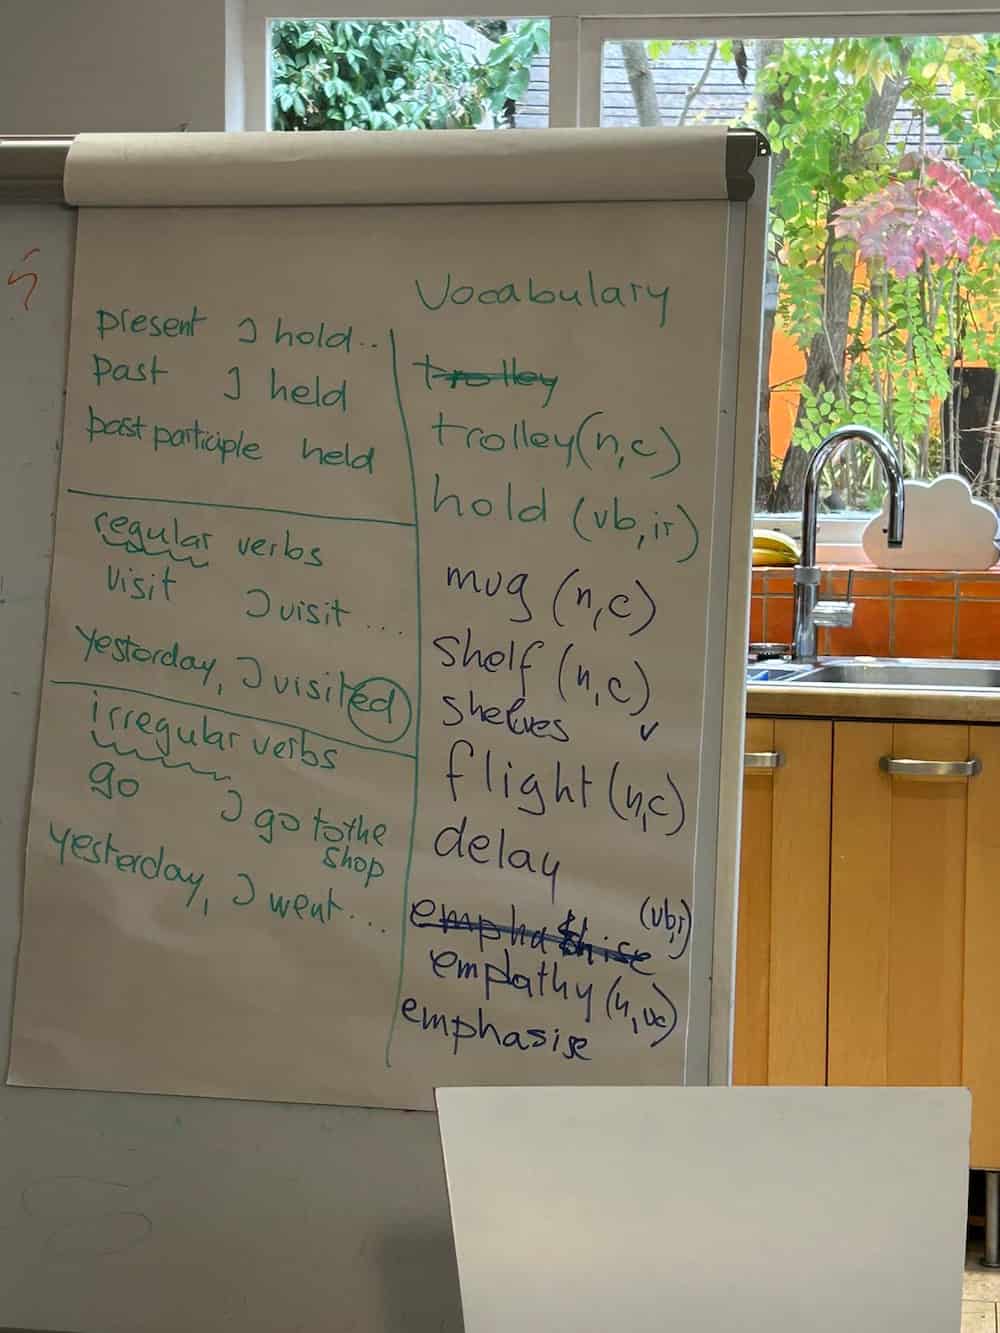 present I hold..
past I held
past participle held
regular verbs
visit I visit ....
yesterday, I visited
irregular verbs
go I go to the
shop
yesterday, I went...
Vocabulary
trolley
trolley (n,c)
hold (vb, ir)
mug (n,c)
shelf (n,c)
shelves
flight (n,c)
delay
(vb,r)
empathy (n, uc)
emphasise